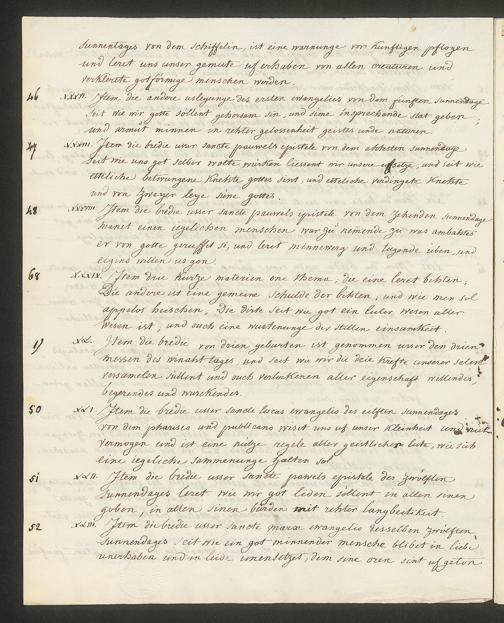 sunnentages von dem schiffelin, ist eine warnunge vor kunftigen pflogen
und leret uns unser gemute uf erhaben von allen creaturen und
verklerete gotförmige menschen werden.
46 XXXVI. Item die andere uslegunge des ersten ewangelies von dem fünften sunnendage
seit wie wir gotte söllent gehorsam sin, und seine insprechende stat geben;
und armut minnen in rehter gelossenheit geistes unde naturen
47 XXXVII. Item die bredie usser sancte pauwels epistele von dem ahtesten sunnendage
seit wie uns got selber wolte würken liessent wir unsere, und seit wie
etteliche betwungene knehte gottes sint, und etteliche verdingete knehte
und von zweyer leye süne gottes.
48 XXXVIII. Item die bredie usser sancte pawels epistele von dem zehenden sunnendage
manet einen iegelichen menschen war zu nemende zu was ambahtes
er von gotte geruffet si, und leret minnewerg und tugende üben, und
eigins willen us gon
68 XXXIX. Item drie kurtze materien one thema, die eine leret bihten;
Die andere ist eine gemeine schulde der bihten, und wie men sol
applos heischen, Die dirte seit wie got ein luter wesen aller
wesen ist, und ouch eine wustenunge der stillen einsamkeit.
1) XL. Item die bredie von drien geburten ist genommen usser den drien
messen des winaht tages, und seit wie wir die drie krefte unserer selen
versamelen süllent und ouch verloickenen aller eigenschaft wellendes
begerendes und wurckendes.
50 XLI. Item die bredie usser sancte lucas ewangelio des elften sunnendages
von dem phariseo und publicano wiset uns uf unser kleinheit und nüt
vermögen und ist eine nütze regele aller geistlichen lute, wie sich
eine iegeliche sammenunge halten sol
51 XLII. Item die bredie usser sancte pawels epistele des zwölften
sunnendages leret wie wir got liden söllent in allen sinen
goben, in allen sinen bürden mit rehter langbeitikeit
52 XLIII. Item die bredie usser sancte marcæ ewangelio desselben zwölften
sunnendages seit wie ein got minnender mensche blibet in liebe
unerhaben und in leide unensetzet, dem sine oren sint uf geton